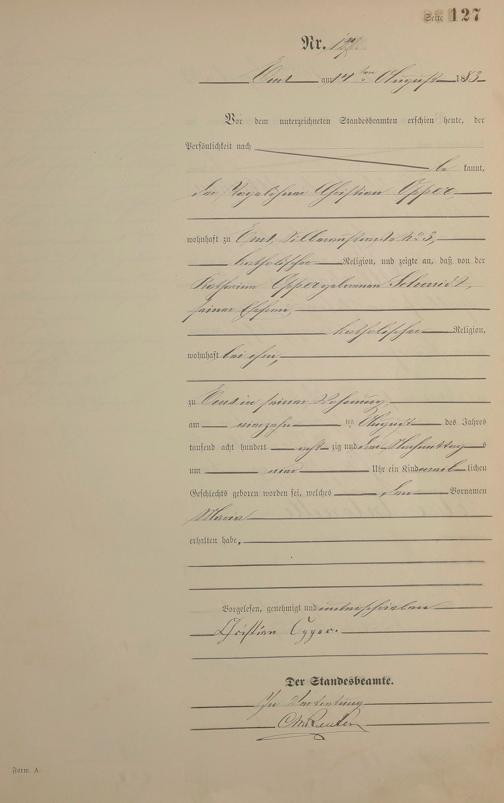 Seite 127
Nr. 127
Ems am 14 ten August 1883
Vor dem unterzeichneten Standesbeamten erschien heute, der
Persönlichkeit nach
be kannt,
der Tagelöhner Christian Opper
wohnhaft zu Ems, Silberaustraße No 3,
katholischer Religion, und zeigte an, daß von der
Katharina Opper geborenen Schmidt,
seiner Ehefrau,
katholischer Religion,
wohnhaft bei ihm,
zu Ems in seiner Wohnung
am ten August des Jahres
tausend acht hundert acht zig und drei Nachmittags
um Uhr ein Kind weib lichen
Geschlechts geboren worden sei, welches den Vornamen
Maria
erhalten habe.
Vorgelesen, genehmigt und unterschrieben
Christian Opper.
Der Standesbeamte.
In Vertretung
Reuter
Form. A.